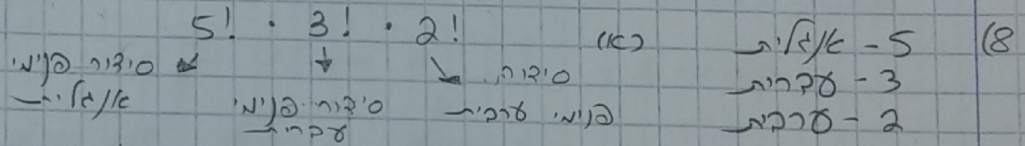 8) 5 - אנגלית
3 - עברית
2 - ערבית
(א)
5! · 3! · 2!
סידור פנימי אנגלית
סידור פנימי עברית
סידור פנימי ערבית